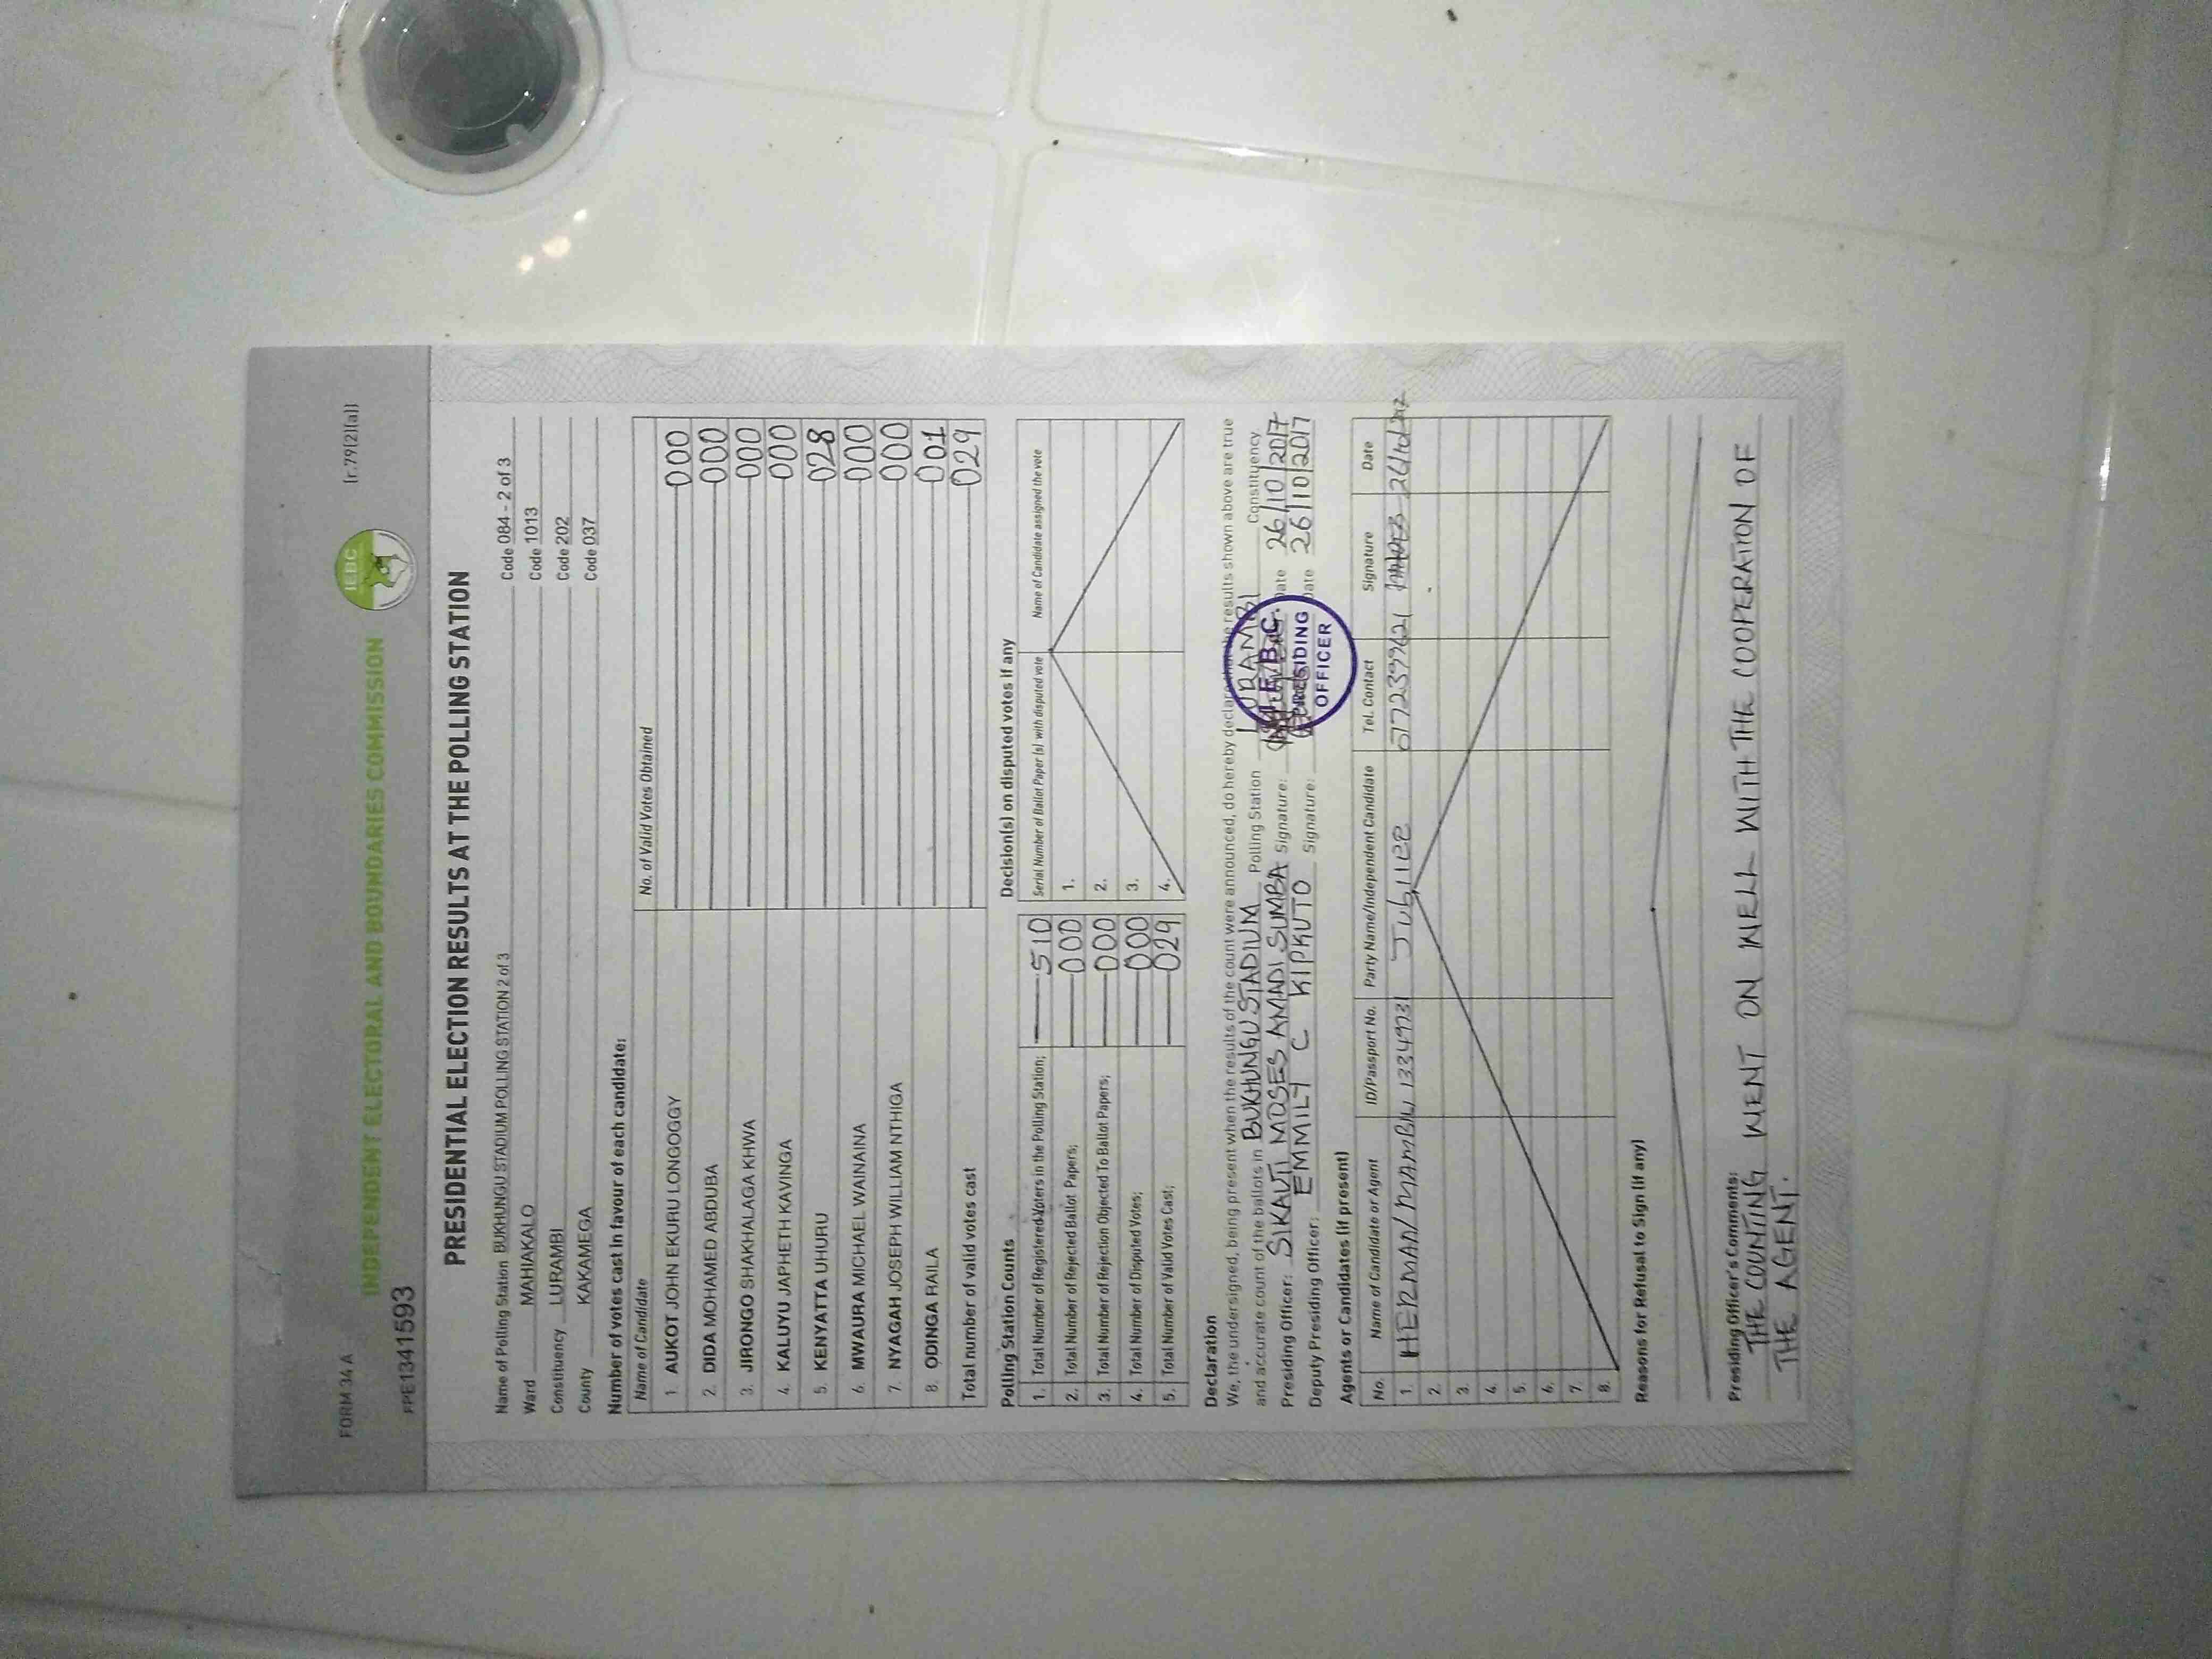 FORM 34 A
[r.79(2)(a)]
IEBC
INDEPENDENT ELECTORAL AND BOUNDARIES COMMISSION
PRE1341593
PRESIDENTIAL ELECTION RESULTS AT THE POLLING STATION
Name of Polling Station BUKHUNGU STADIUM POLLING STATION 2 of 3 Code 084 - 2 of 3
Ward MAHIAKALO Code 1013
Constituency LURAMBI Code 202
County KAKAMEGA Code 037
Number of votes cast in favour of each candidate:
Name of Candidate No. of Valid Votes Obtained
1. AUKOT JOHN EKURU LONGOGGY 000
2. DIDA MOHAMED ABDUBA 000
3. JIRONGO SHAKHALAGA KHWA 000
4. KALUYU JAPHETH KAVINGA 000
5. KENYATTA UHURU 028
6. MWAURA MICHAEL WAINAINA 000
7. NYAGAH JOSEPH WILLIAM NTHIGA 000
8. ODINGA RAILA 001
Total number of valid votes cast 029
Polling Station Counts
1. Total Number of Registered Voters in the Polling Station; 510
2. Total Number of Rejected Ballot Papers; 000
3. Total Number of Rejection Objected To Ballot Papers; 000
4. Total Number of Disputed Votes; 000
5. Total Number of Valid Votes Cast; 029
Decision(s) on disputed votes if any
Serial Number of Ballot Paper (s) with disputed vote Name of Candidate assigned the vote
1.
2.
3.
4.
Declaration
We, the undersigned, being present when the results of the count were announced, do hereby declare that the results shown above are true
and accurate count of the ballots in BUKHUNGU STADIUM Polling Station LURAMBI Constituency.
Presiding Officer: SIKAUTI MOSES AMADI SUMBA Signature: Date 26/10/2017
Deputy Presiding Officer: EMMILY C KIPKUTO Signature: Date 26/10/2017
I.E.B.C.
PRESIDING
OFFICER
Agents or Candidates (if present)
No. Name of Candidate or Agent ID/Passport No. Party Name/Independent Candidate Tel. Contact Signature Date
1. HERMAN Jubilee
2.
3.
4.
5.
6.
7.
8.
Reasons for Refusal to Sign (if any)
Presiding Officer's Comments:
THE COUNTING WENT ON WELL WITH THE COOPERATION OF
THE AGENT.